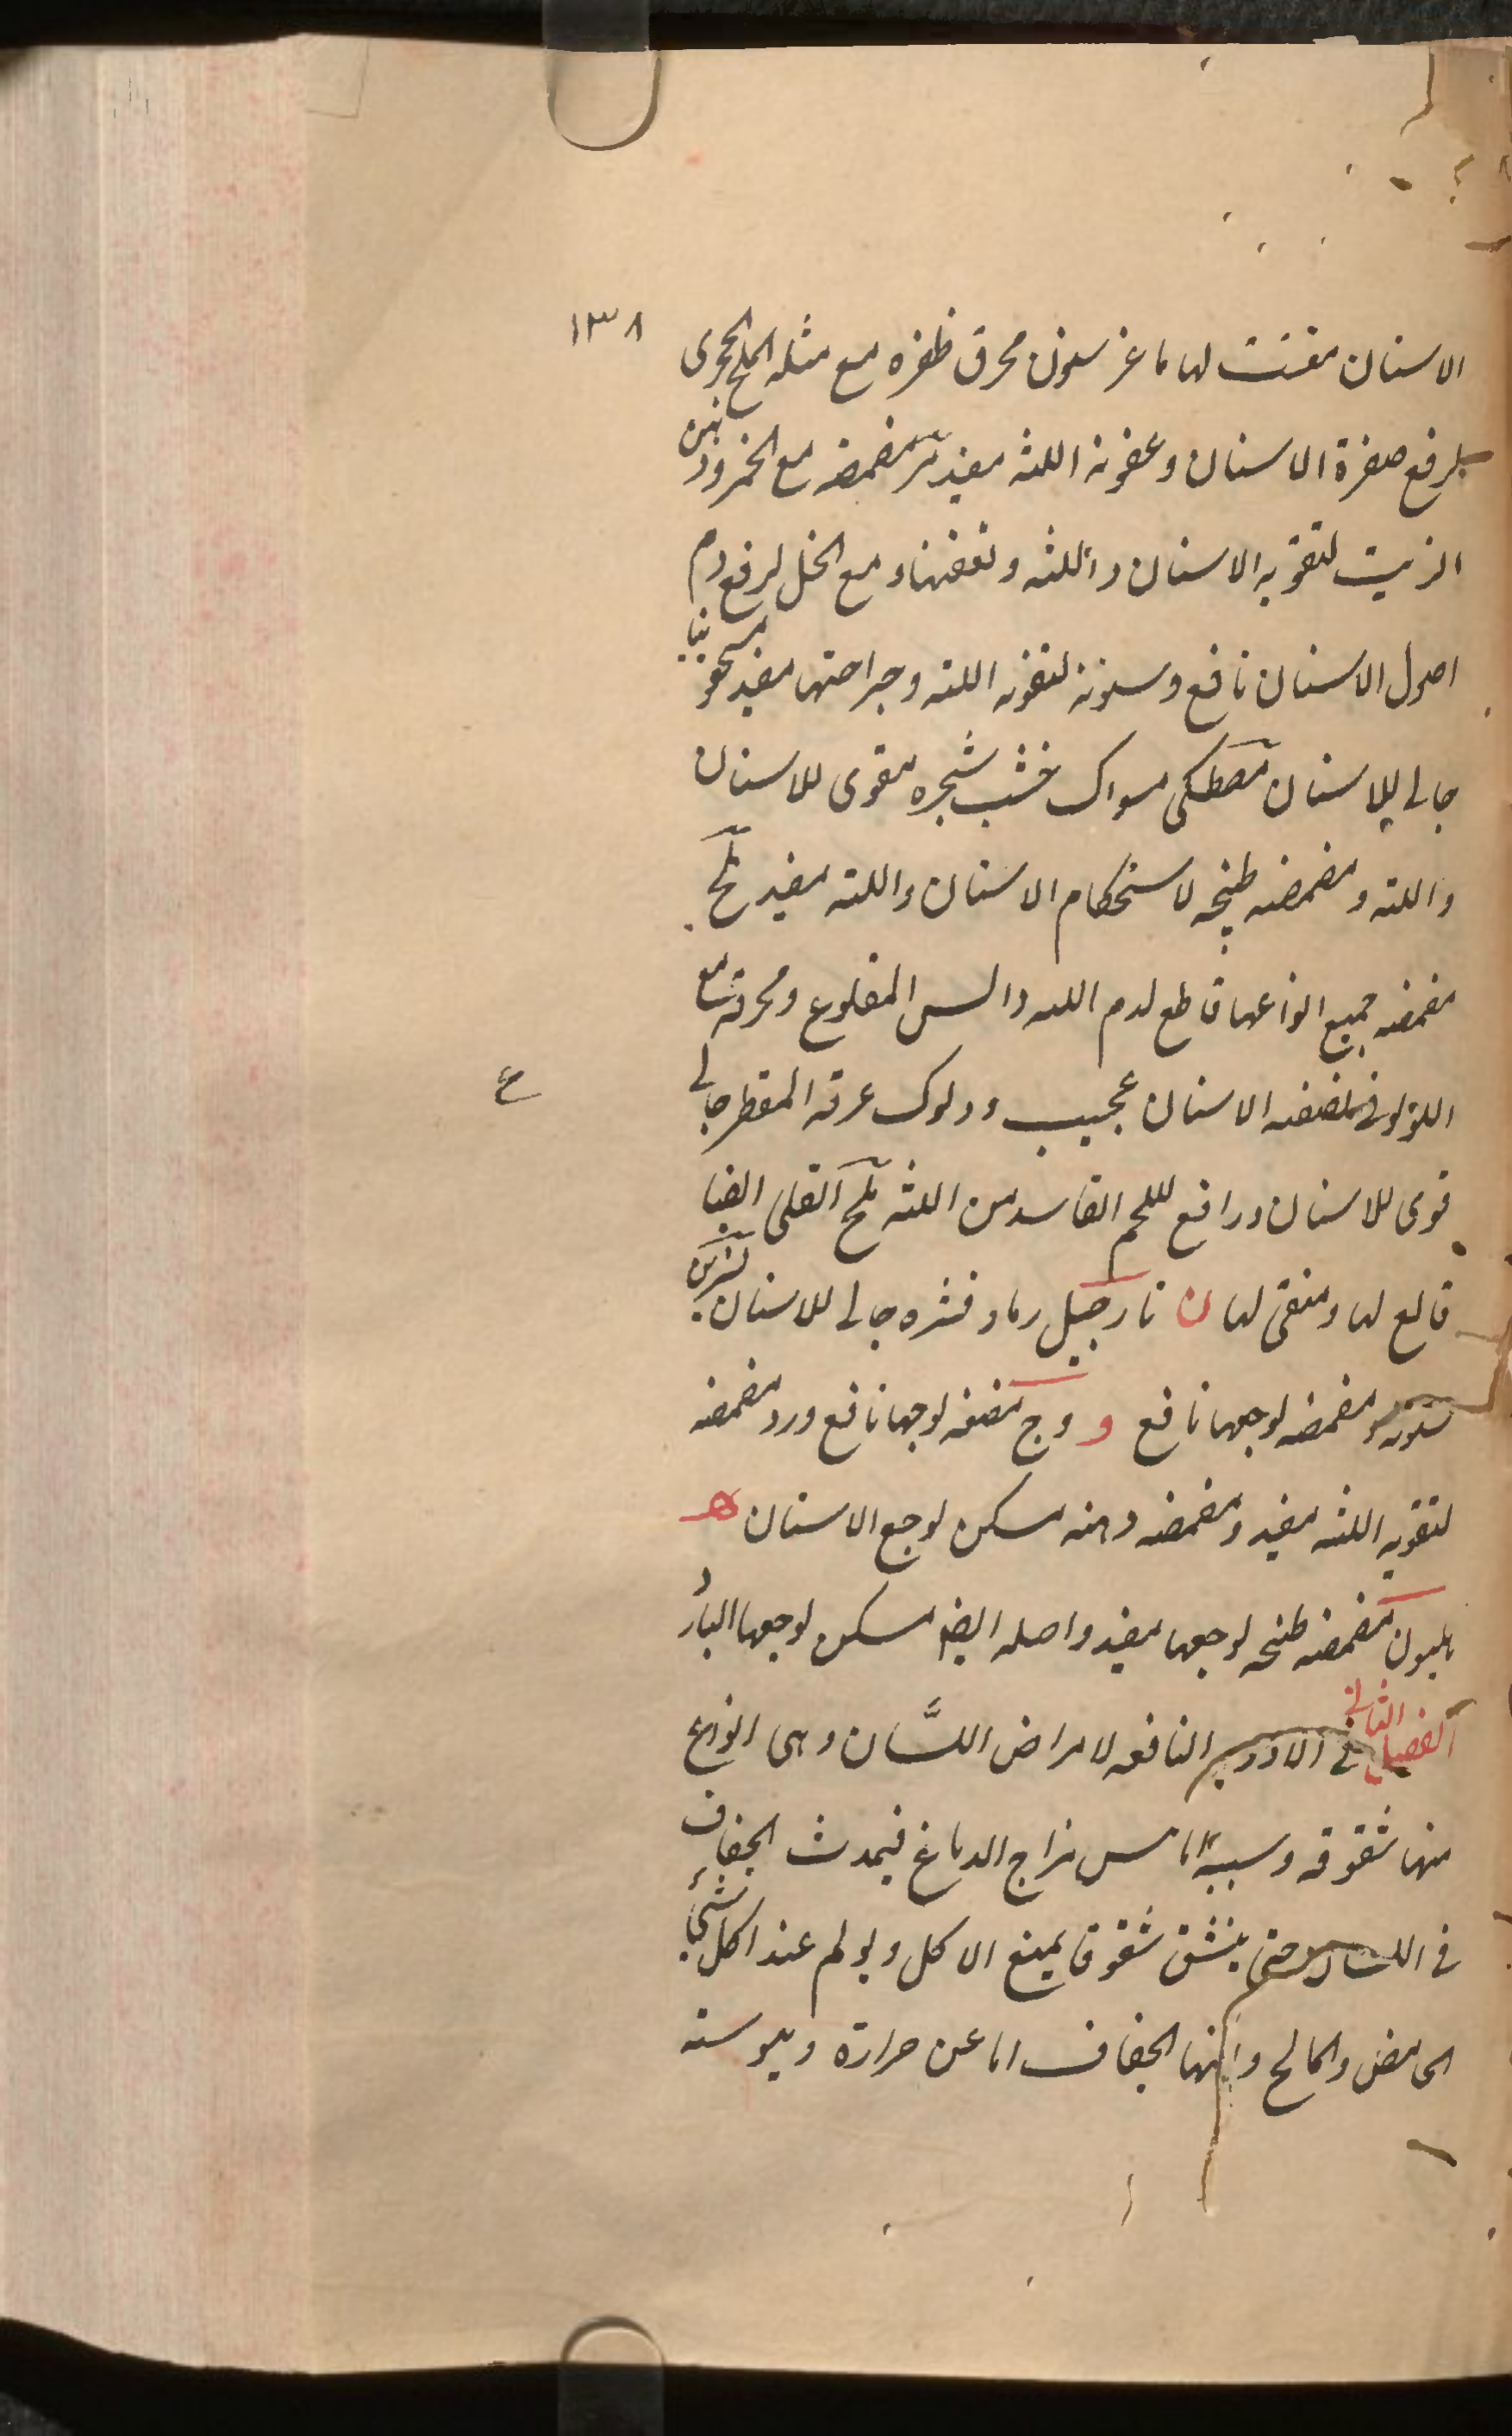 ١٣٨
الاسنان مفتت لها ماعز سنون محرق ظفره مع مثله الملح الحجرى
لرفع صفرة الاسنان وعفونة اللثه مفيد مر مضمضه مع الخمر ودهن
الزيت لتقويه الاسنان واللثه وتعفنها ومع الخل لرفع دم
اصول الاسنان نافع وسنونه لتقويه اللثه وجراحتها مفيد
جالى للاسنان مصطكى مسواك خشب شجره مقوى للاسنان
واللثه ومضمضه طبخه لاستحكام الاسنان واللثه مفيد ملح
مضمضه جميع انواعها قاطع لدم اللثه والسن المقلوع ومحرقه مع
اللؤلؤ الاسنان عجيب ودلوك عرقه المقطر جالى
ع
قوى للاسنان ورافع للحم الفاسد من اللثه ملح القلى ايضا
قالع لها ومنقى لها ن نارجيل رماد قشره جالى للاسنان نسرين
سنونه ومضمضه لوجعها نافع و وج مضغه لوجعها نافع ورد مضمضه
لتقويه اللثه مفيد ومضمضه دهنه مسكن لوجع الاسنان هـ
هليون مضمضه طبخه لوجعها مفيد واصله ايضا مسكن لوجعها البارد
الفصل الثانى فى الادويه النافعه لامراض اللسان وهى انواع
منها شقوقه وسببه اما مزاج الدماغ فيحدث الجفاف
فى اللسان حتى ينشق شقوق يمنع الاكل ويولم عند اكل شئ
الحامض والمالح والجفاف اما عن حرارة ويبوسته